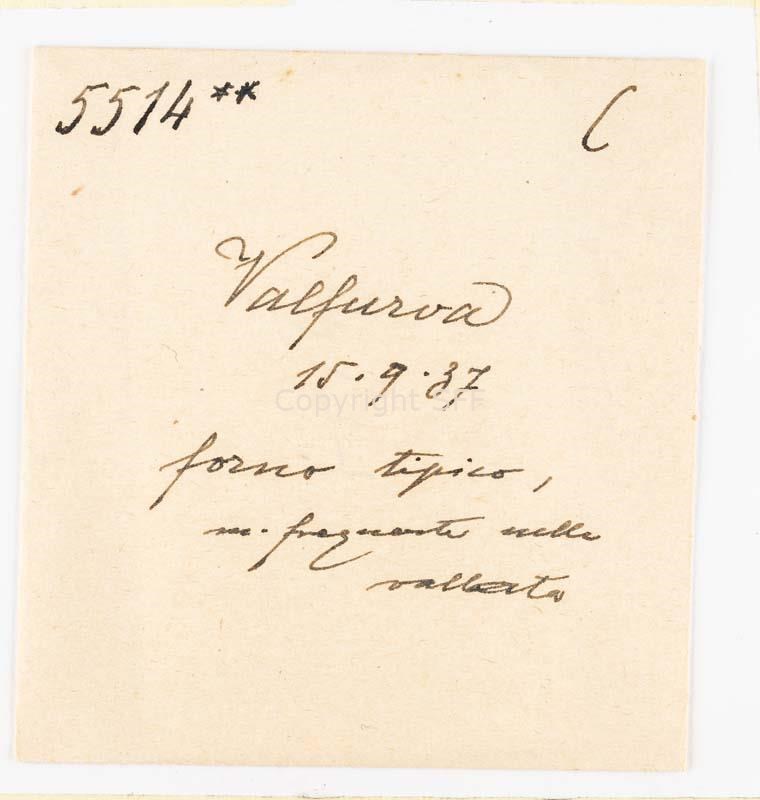 5514** C
Valfurva
15.9.37
Copyright SFF
forno tipico,
m. frequente nella
vallata